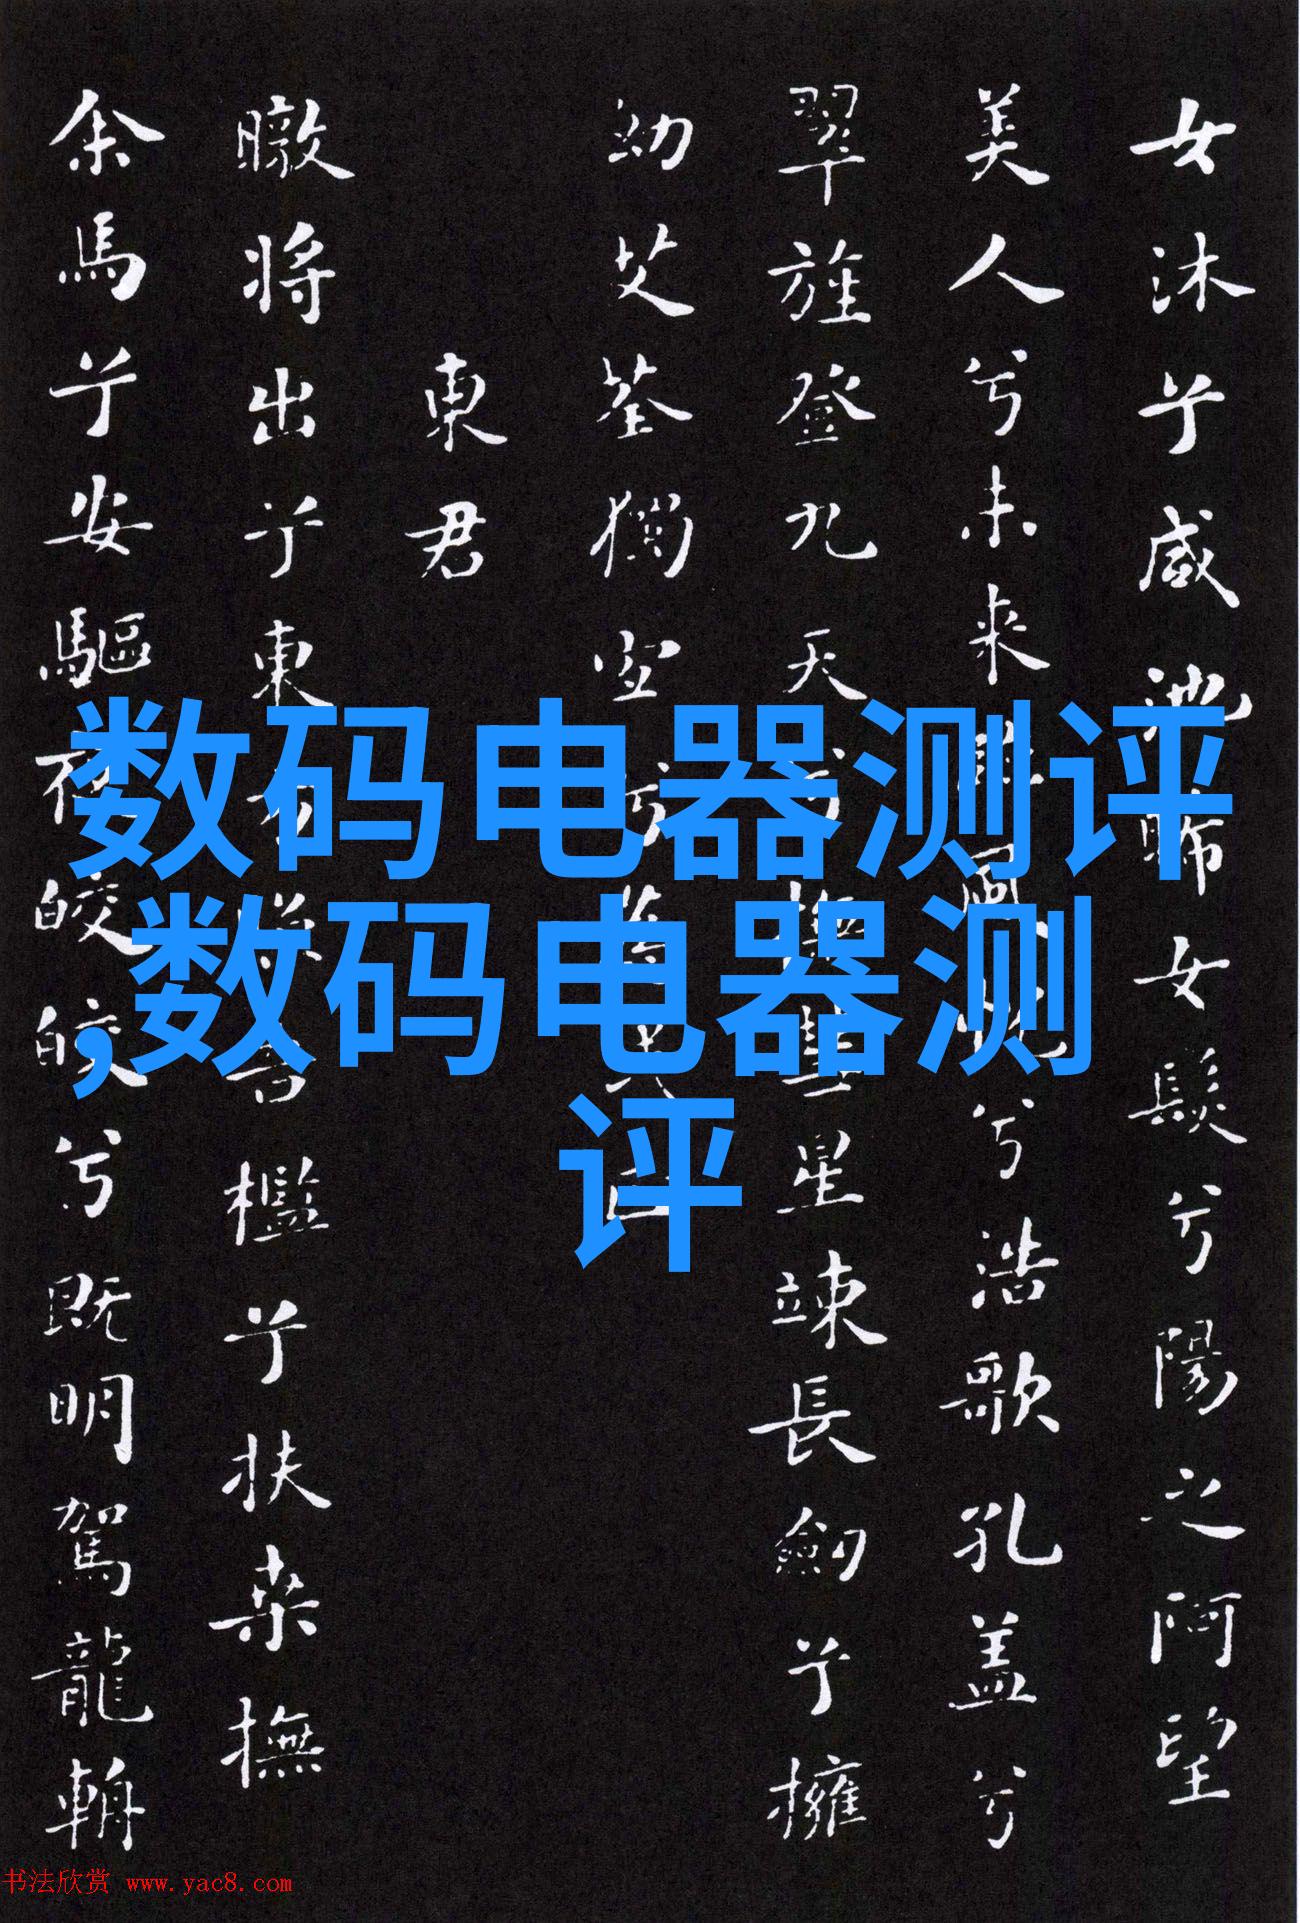 女沐兮咸池晞女髮兮陽之阿望
美人兮未来臨風怳兮浩歌孔盖兮
翠旍登九天兮撫彗星竦長劍兮擁
幼艾荃獨宜兮為民正
東君
暾将出兮東方照吾檻兮扶桒撫
余馬兮安驅夜皎皎兮既明駕龍輈
数码电器测评
,数码电器测
评
书法欣赏 www.yac8.com